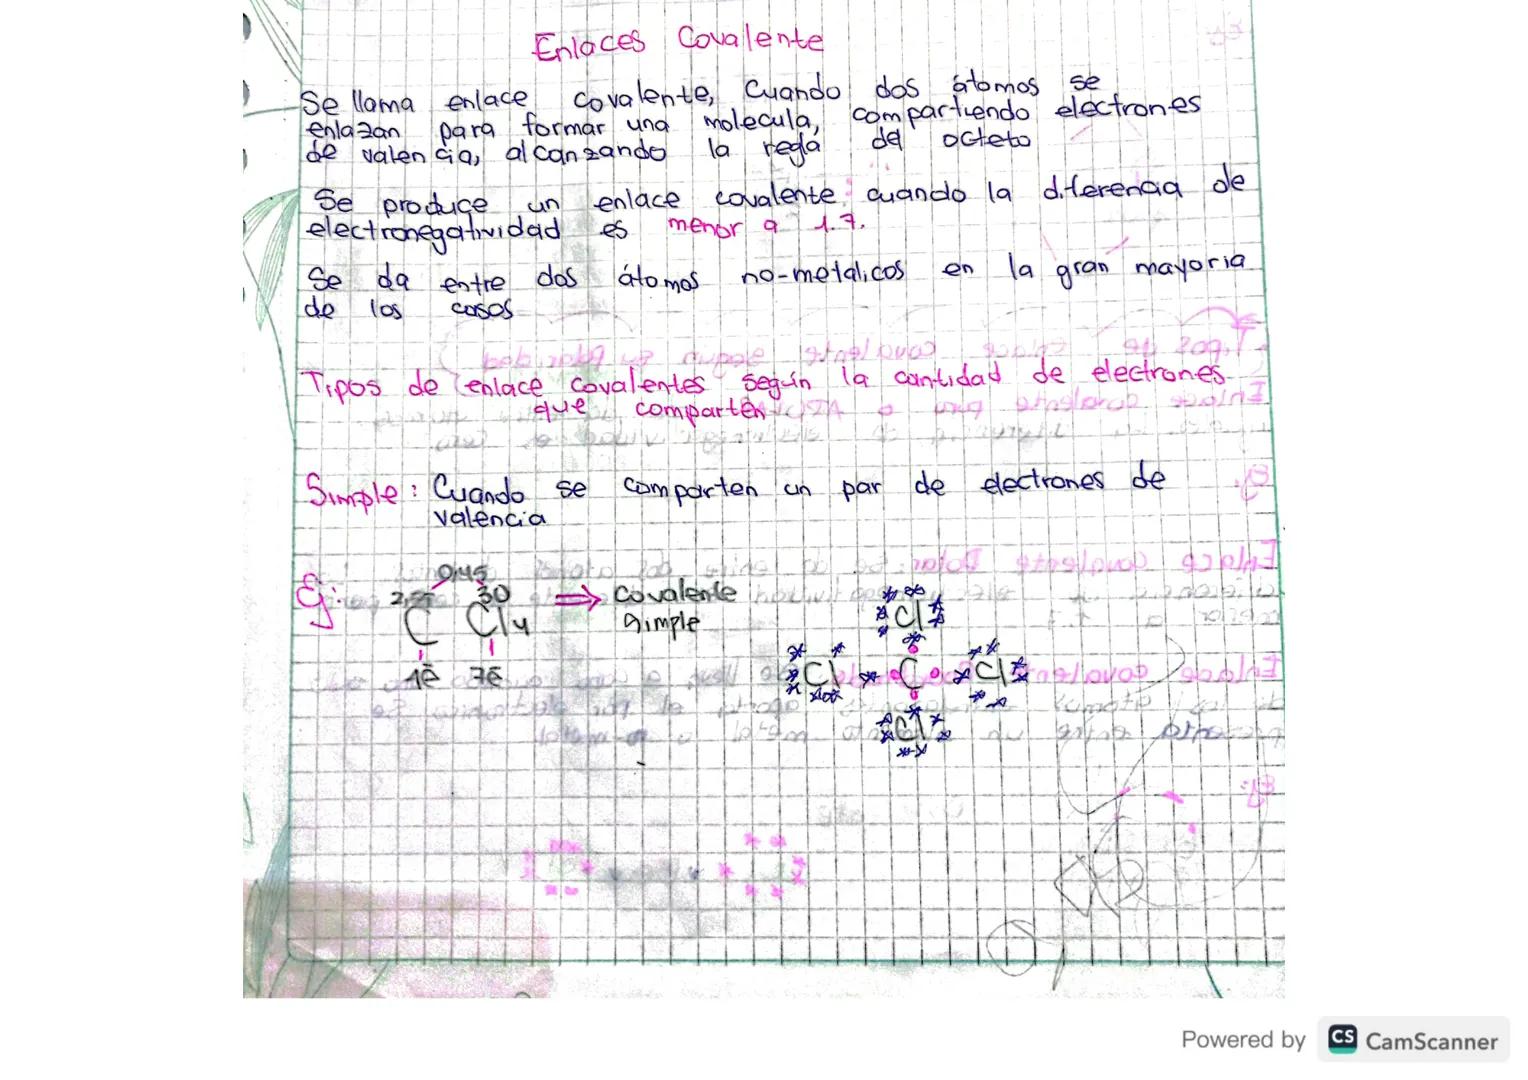 Enlaces Covalente
Se llama enlace covalente, Cuando dos átomos se
enlazan para formar una molecula, compartiendo electrones
de valencia, alcanzando la regla del octeto
Se produce un enlace covalente cuando la diferencia de
electronegatividad es menor a 1.7.
Se da entre dos átomos no-metalicos en la gran mayoria
de los casos
Tipos de enlace covalentes según la cantidad de electrones
que comparten
Simple: Cuando se comparten un par de electrones de
valencia
Ej:
0,45
30
C Cl4
7ē
⇒ Covalente
Simple
Cl
Cl C Cl
Cl
Powered by CS CamScanner